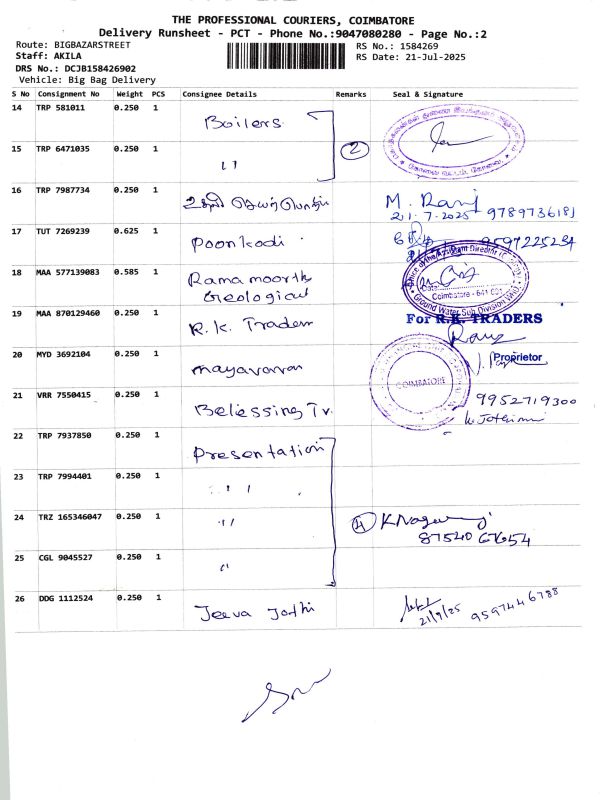 THE PROFESSIONAL COURIERS, COIMBATORE
Delivery Runsheet - PCT - Phone No.:9047080280 - Page No.:2
Route: BIGBAZARSTREET
RS No.: 1584269
Staff: AKILA
RS Date: 21-Jul-2025
DRS No.: DCJB158426902
Vehicle: Big Bag Delivery
S No Consignment No Weight PCS Consignee Details Remarks Seal & Signature
14 TRP 581011 0.250 1 Boilers
15 TRP 6471035 0.250 1 " 2
16 TRP 7987734 0.250 1 M. Ravi
21.7.2025 9789736181
17 TUT 7269239 0.625 1 Poonkodi 9597225234
18 MAA 577139083 0.585 1 Ramamoorth
Geological
Coimbatore - 641 001
Ground Water Sub Division
19 MAA 870129460 0.250 1 R.K. Traders For R.K. TRADERS
Proprietor
20 MYD 3692104 0.250 1 mayavaram COIMBATORE
21 VRR 7550415 0.250 1 Belessing Tv. 9952719300
22 TRP 7937850 0.250 1 Presentation
23 TRP 7994401 0.250 1 "
24 TRZ 165346047 0.250 1 " 4 K Nagaraj
87540 67654
25 CGL 9045527 0.250 1 "
26 DDG 1112524 0.250 1 Jeeva Jothi 21/7/25 9597446788